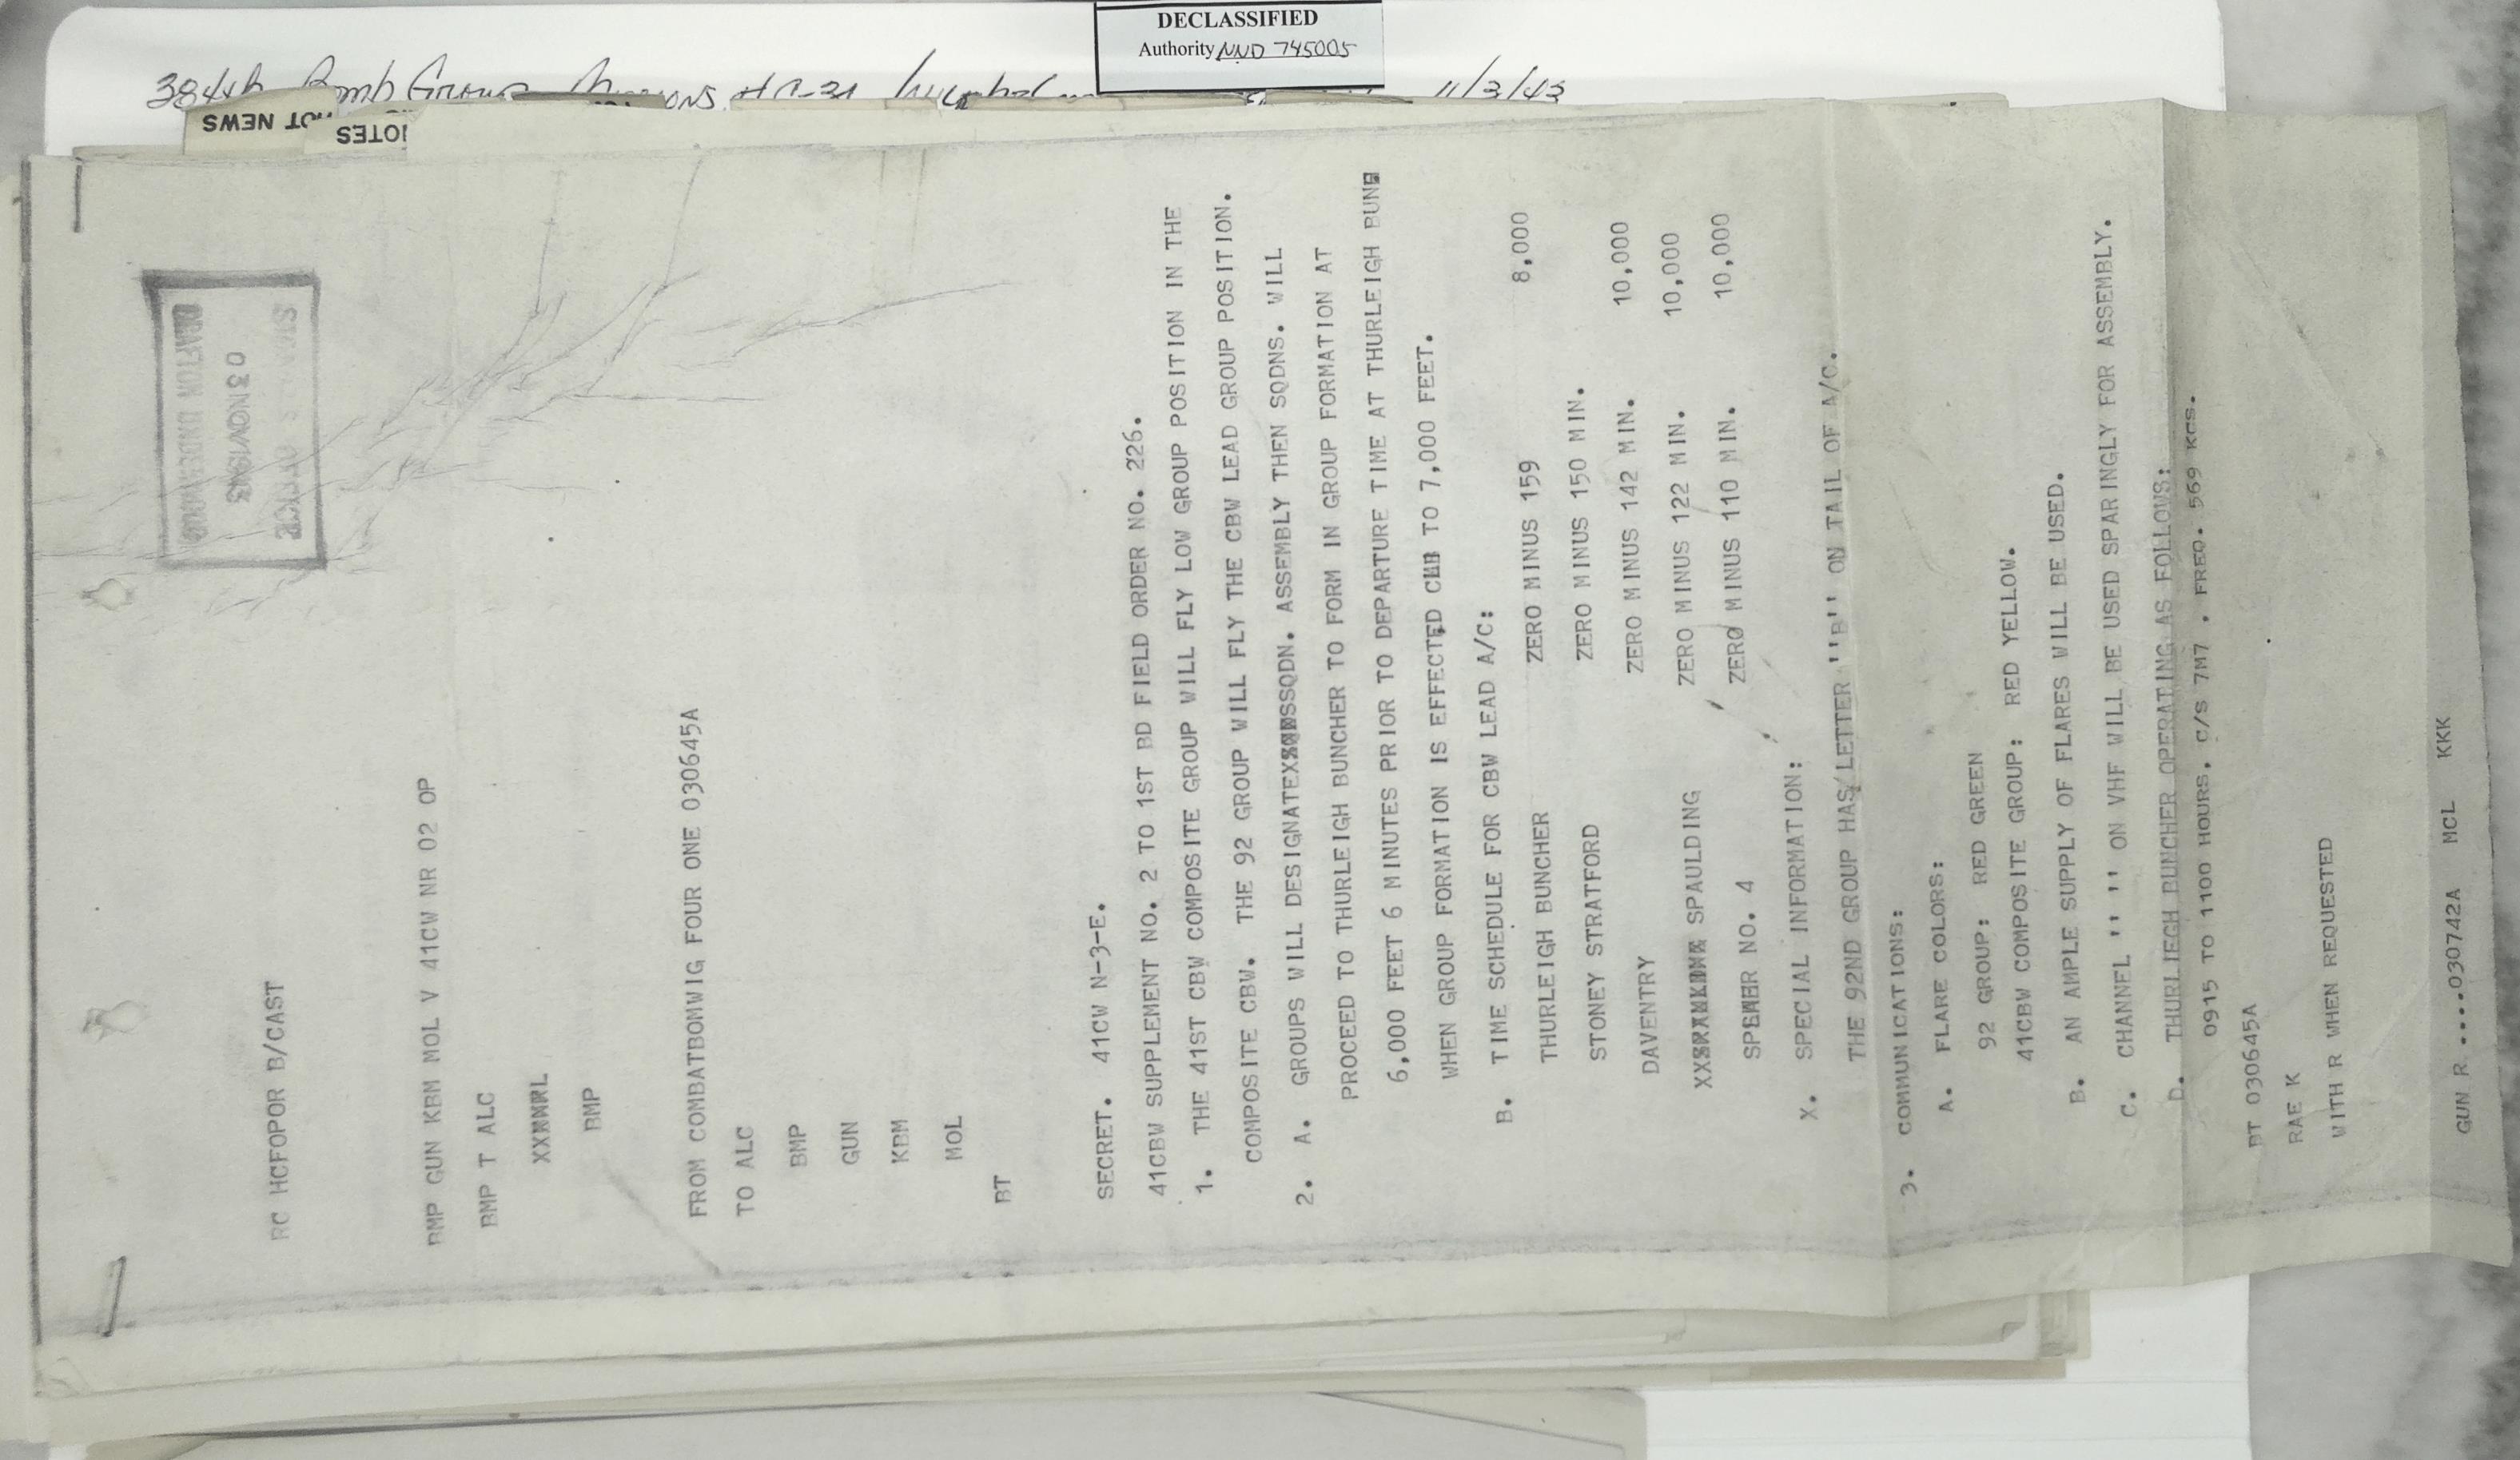 DECLASSIFIED
Authority NND 745005
384th Bomb Group 11/3/43
NOT NEWS
NOTES
GRAFTON UNDERWOOD
03 NOV 1943
OFFICE
RC HCFOPOR B/CAST
BMP GUN KBM MOL V 41CW NR 02 OP
BMP T ALC
BMP
FROM COMBATBOMWIG FOUR ONE 030645A
TO ALC
BMP
GUN
KBM
MOL
BT
SECRET. 41CW N-3-E.
41CBW SUPPLEMENT NO. 2 TO 1ST BD FIELD ORDER NO. 226.
1. THE 41ST CBW COMPOSITE GROUP WILL FLY LOW GROUP POSITION IN THE
COMPOSITE CBW. THE 92 GROUP WILL FLY THE CBW LEAD GROUP POSITION.
2. A. GROUPS WILL DESIGNATE SQDN. ASSEMBLY THEN SQDNS. WILL
PROCEED TO THURLEIGH BUNCHER TO FORM IN GROUP FORMATION AT
6,000 FEET 6 MINUTES PRIOR TO DEPARTURE TIME AT THURLEIGH BUN
WHEN GROUP FORMATION IS EFFECTED TO 7,000 FEET.
B. TIME SCHEDULE FOR CBW LEAD A/C:
THURLEIGH BUNCHER ZERO MINUS 159 8,000
STONEY STRATFORD ZERO MINUS 150 MIN.
DAVENTRY ZERO MINUS 142 MIN. 10,000
SPAULDING ZERO MINUS 122 MIN. 10,000
NO. 4 ZERO MINUS 110 MIN. 10,000
X. SPECIAL INFORMATION:
THE 92ND GROUP HAS/LETTER ''B'' ON TAIL OF A/C.
3. COMMUNICATIONS:
A. FLARE COLORS:
92 GROUP: RED GREEN
41CBW COMPOSITE GROUP: RED YELLOW.
B. AN AMPLE SUPPLY OF FLARES WILL BE USED.
C. CHANNEL '' '' ON VHF WILL BE USED SPARINGLY FOR ASSEMBLY.
D. THURLIEGH BUNCHER OPERATING AS FOLLOWS:
0915 TO 1100 HOURS. C/S 7M7 . FREQ. 569 KCS.
BT 030645A
RAE K
WITH R WHEN REQUESTED
GUN R ....030742A MCL KKK